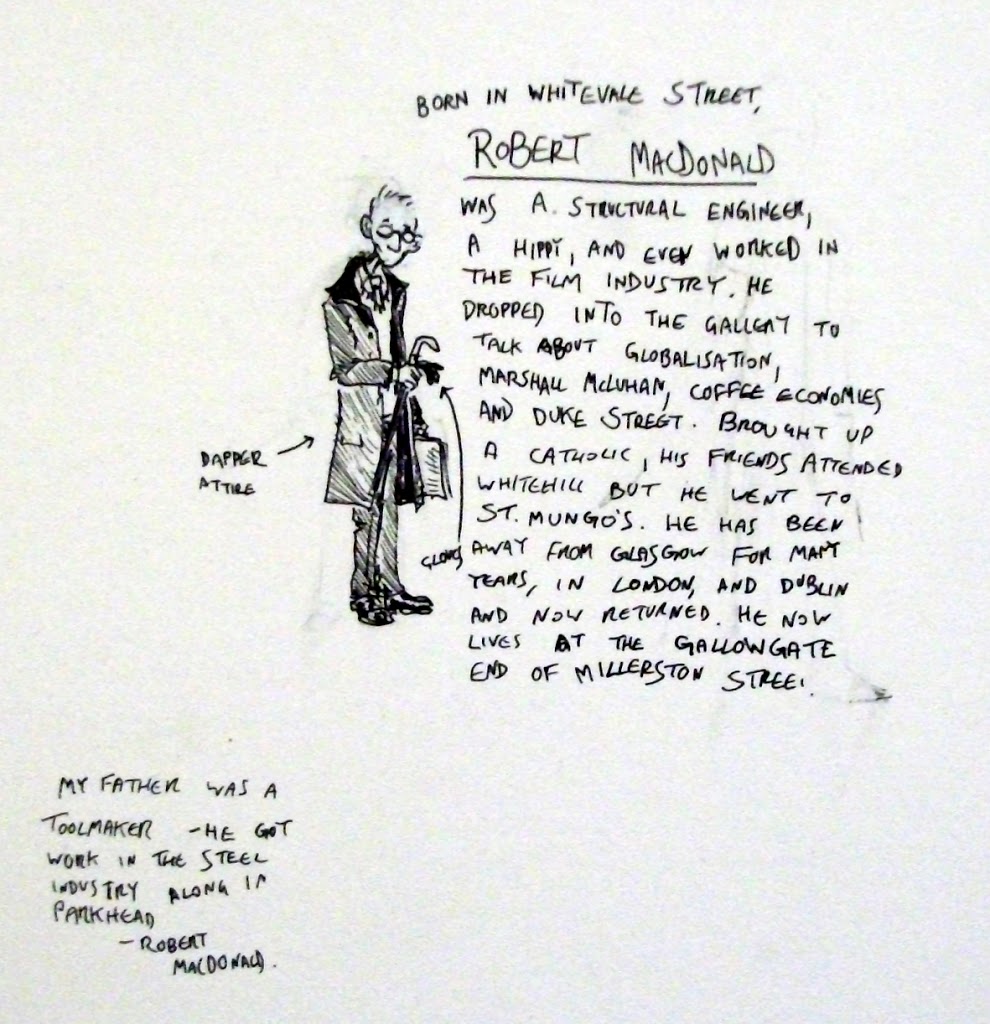 BORN IN WHITEVALE STREET,
ROBERT MACDONALD
WAS A STRUCTURAL ENGINEER,
A HIPPY, AND EVEN WORKED IN
THE FILM INDUSTRY. HE
DROPPED INTO THE GALLERY TO
TALK ABOUT GLOBALISATION,
MARSHALL McLUHAN, COFFEE ECONOMIES
AND DUKE STREET. BROUGHT UP
A CATHOLIC, HIS FRIENDS ATTENDED
WHITEHILL BUT HE WENT TO
ST. MUNGO'S. HE HAS BEEN
AWAY FROM GLASGOW FOR MANY
YEARS, IN LONDON, AND DUBLIN
AND NOW RETURNED. HE NOW
LIVES AT THE GALLOWGATE
END OF MILLERSTON STREET.
DAPPER
ATTIRE
GLOVES
MY FATHER WAS A
TOOLMAKER - HE GOT
WORK IN THE STEEL
INDUSTRY ALONG IN
PARKHEAD
- ROBERT
MACDONALD.